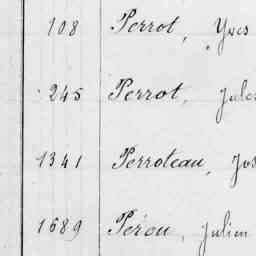 108 Perrot, Yves
245 Perrot, Jules
1341 Perroteau, Jos
1689 Pérou, Julien